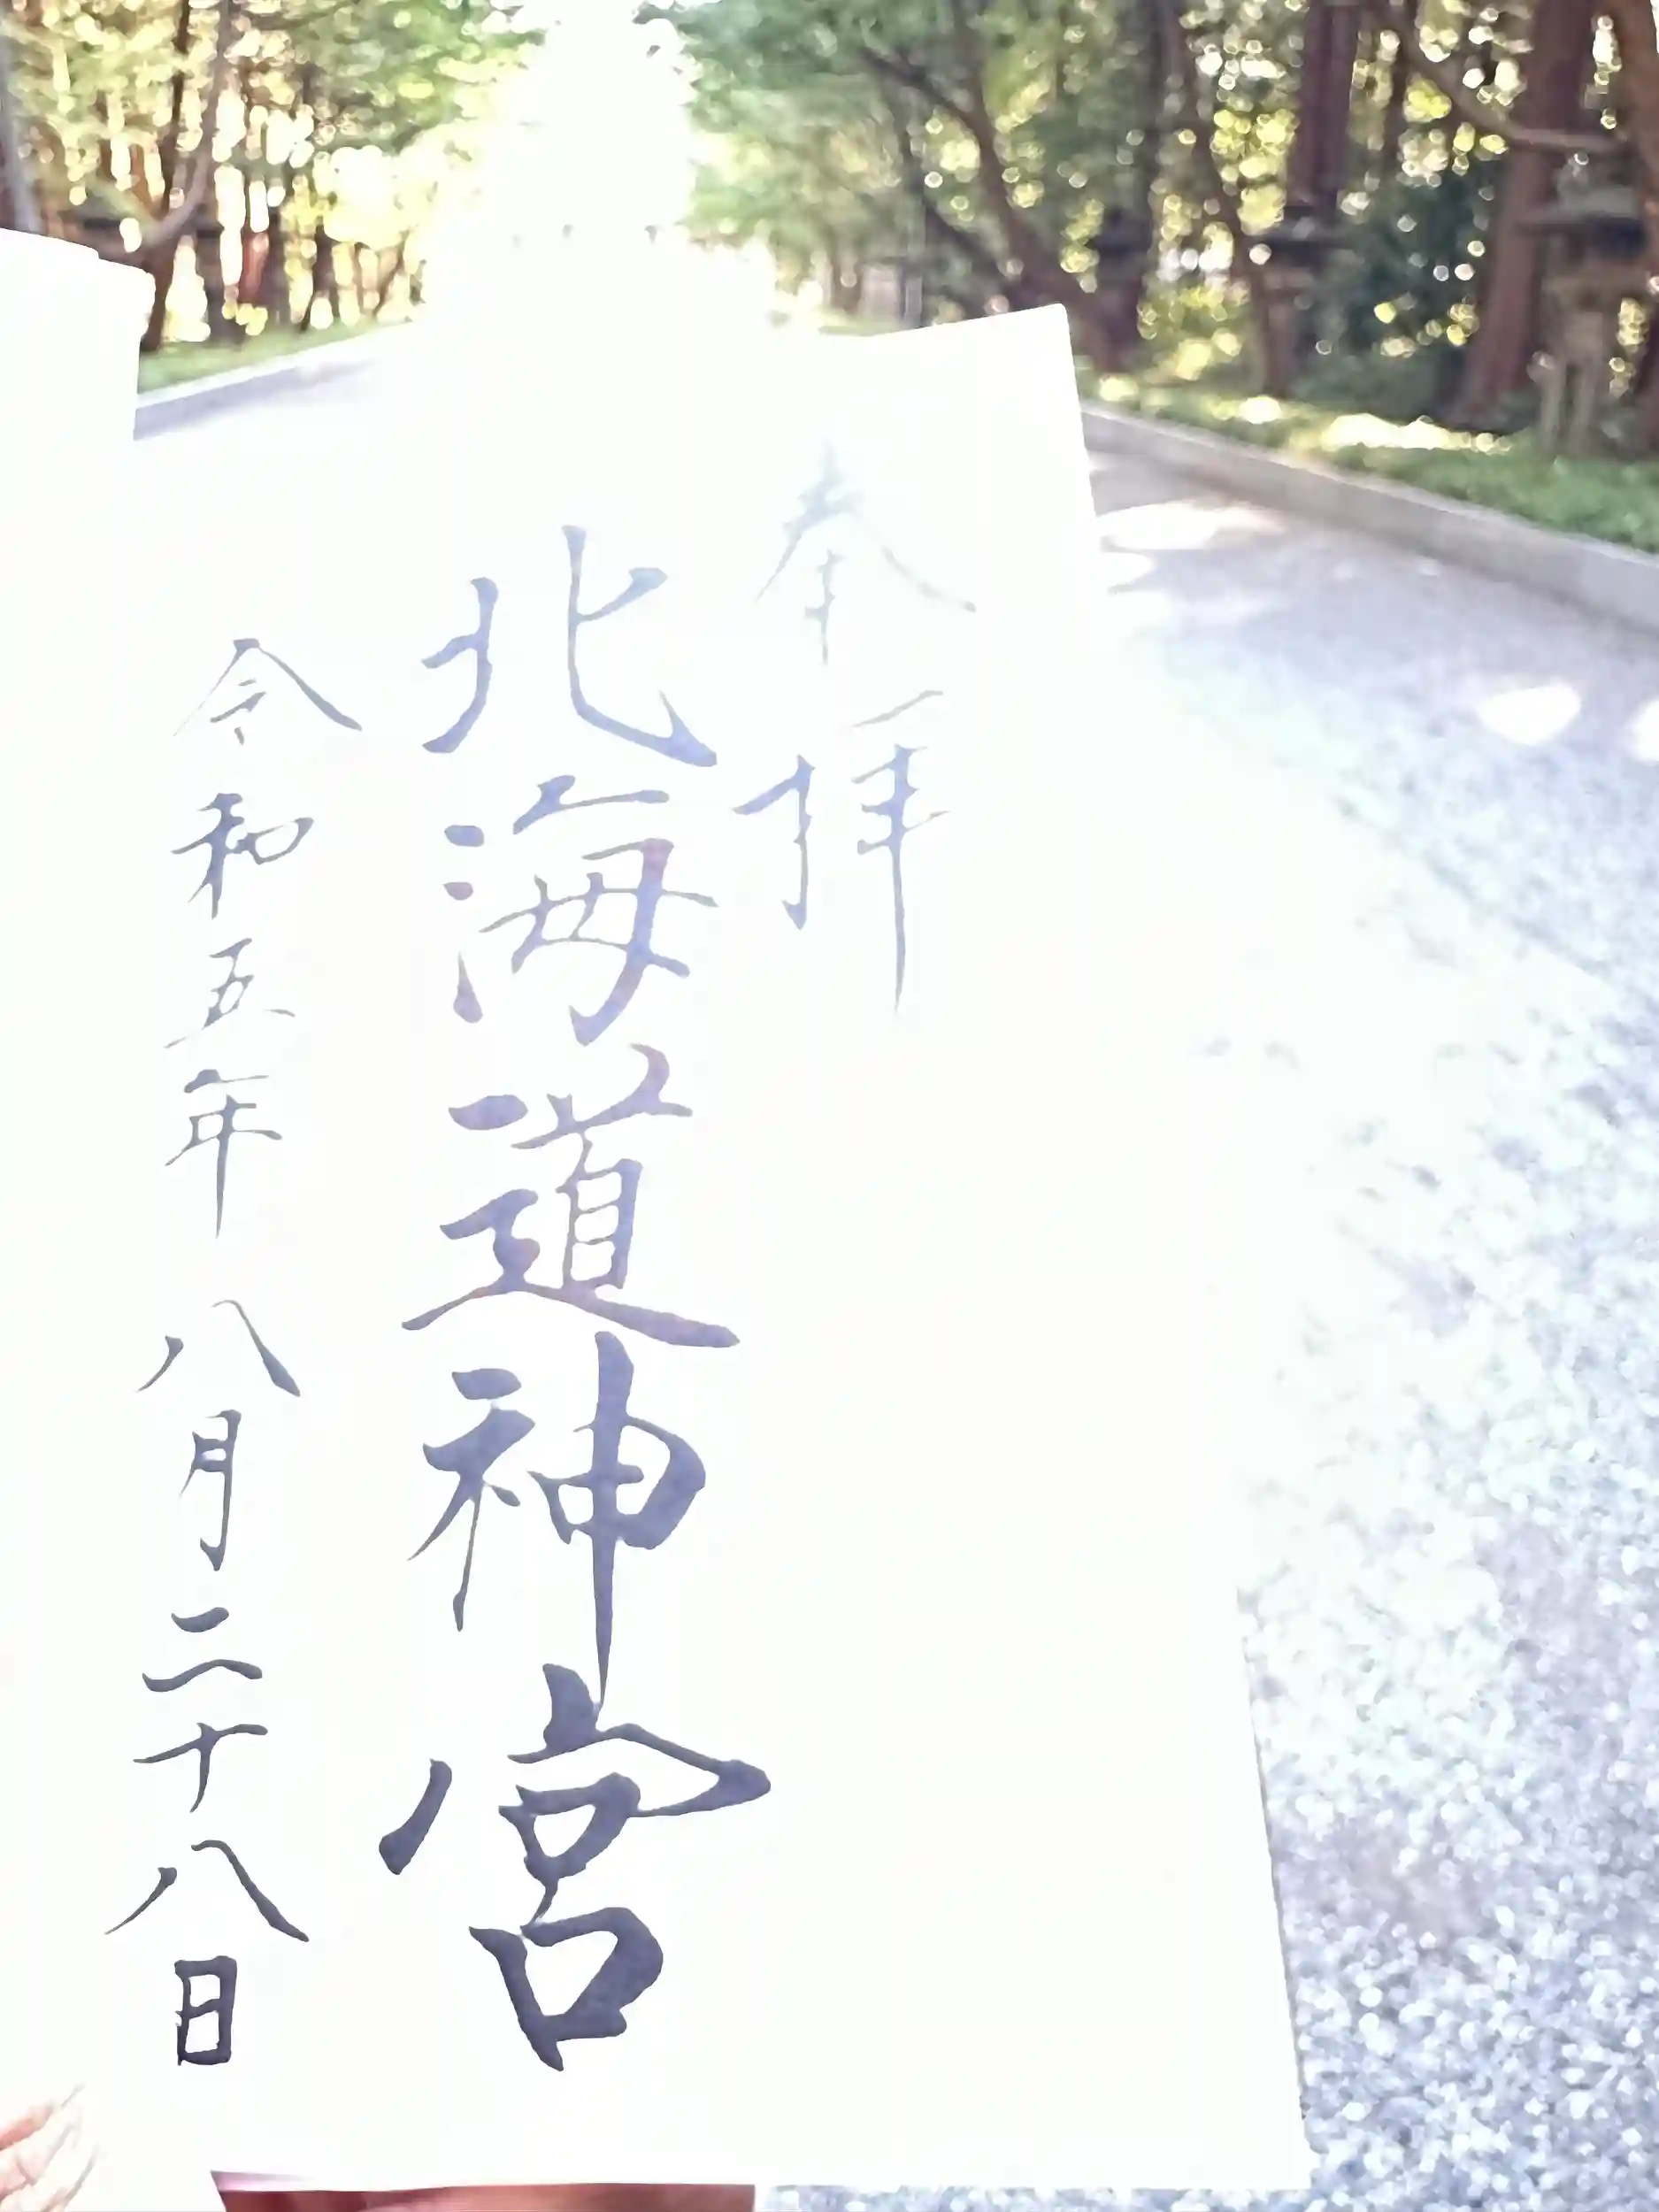 奉拝
北海道神宮
令和五年八月二十八日